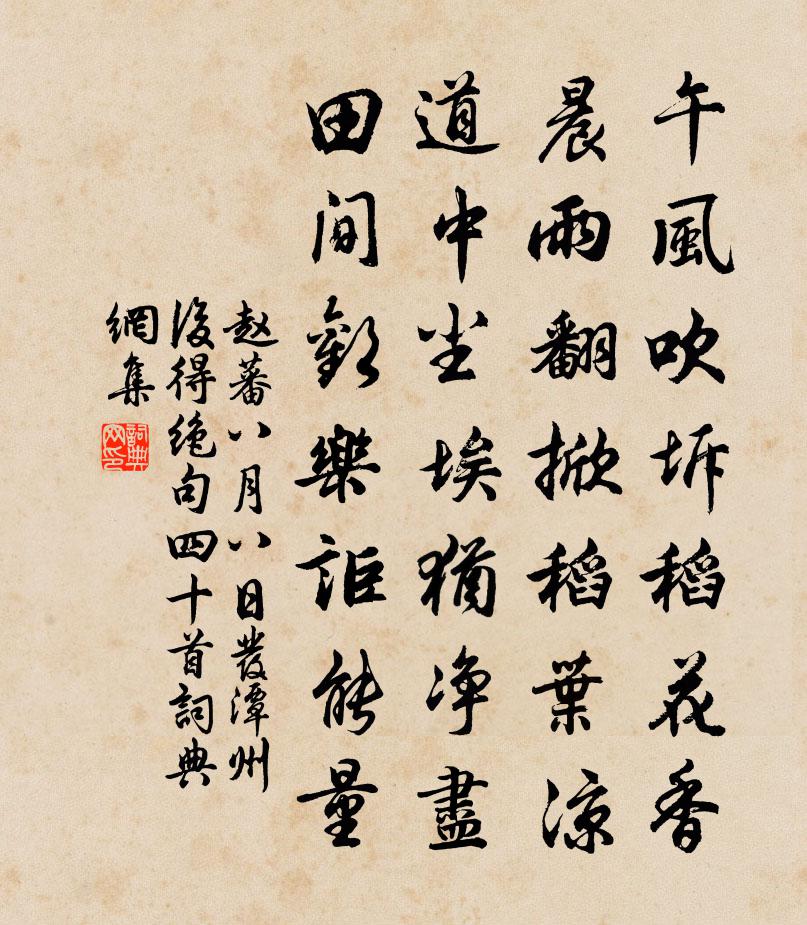 午風吹坼稻花香
晨雨翻掀稻葉凉
道中尘埃猶净盡
田間歡樂詎能量
赵蕃八月八日發潭州
後得绝句四十首詞典
網集
詞典網印